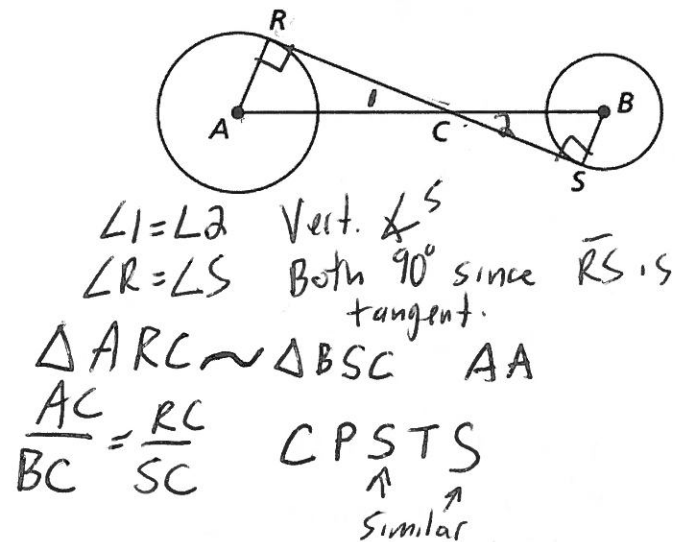 R
A
1
C
2
B
S
∠1=∠2 Vert. ∡s
∠R=∠S Both 90° since R̅S̅ is
tangent.
△ARC ~ △BSC AA
AC/BC = RC/SC CPSTS
Similar